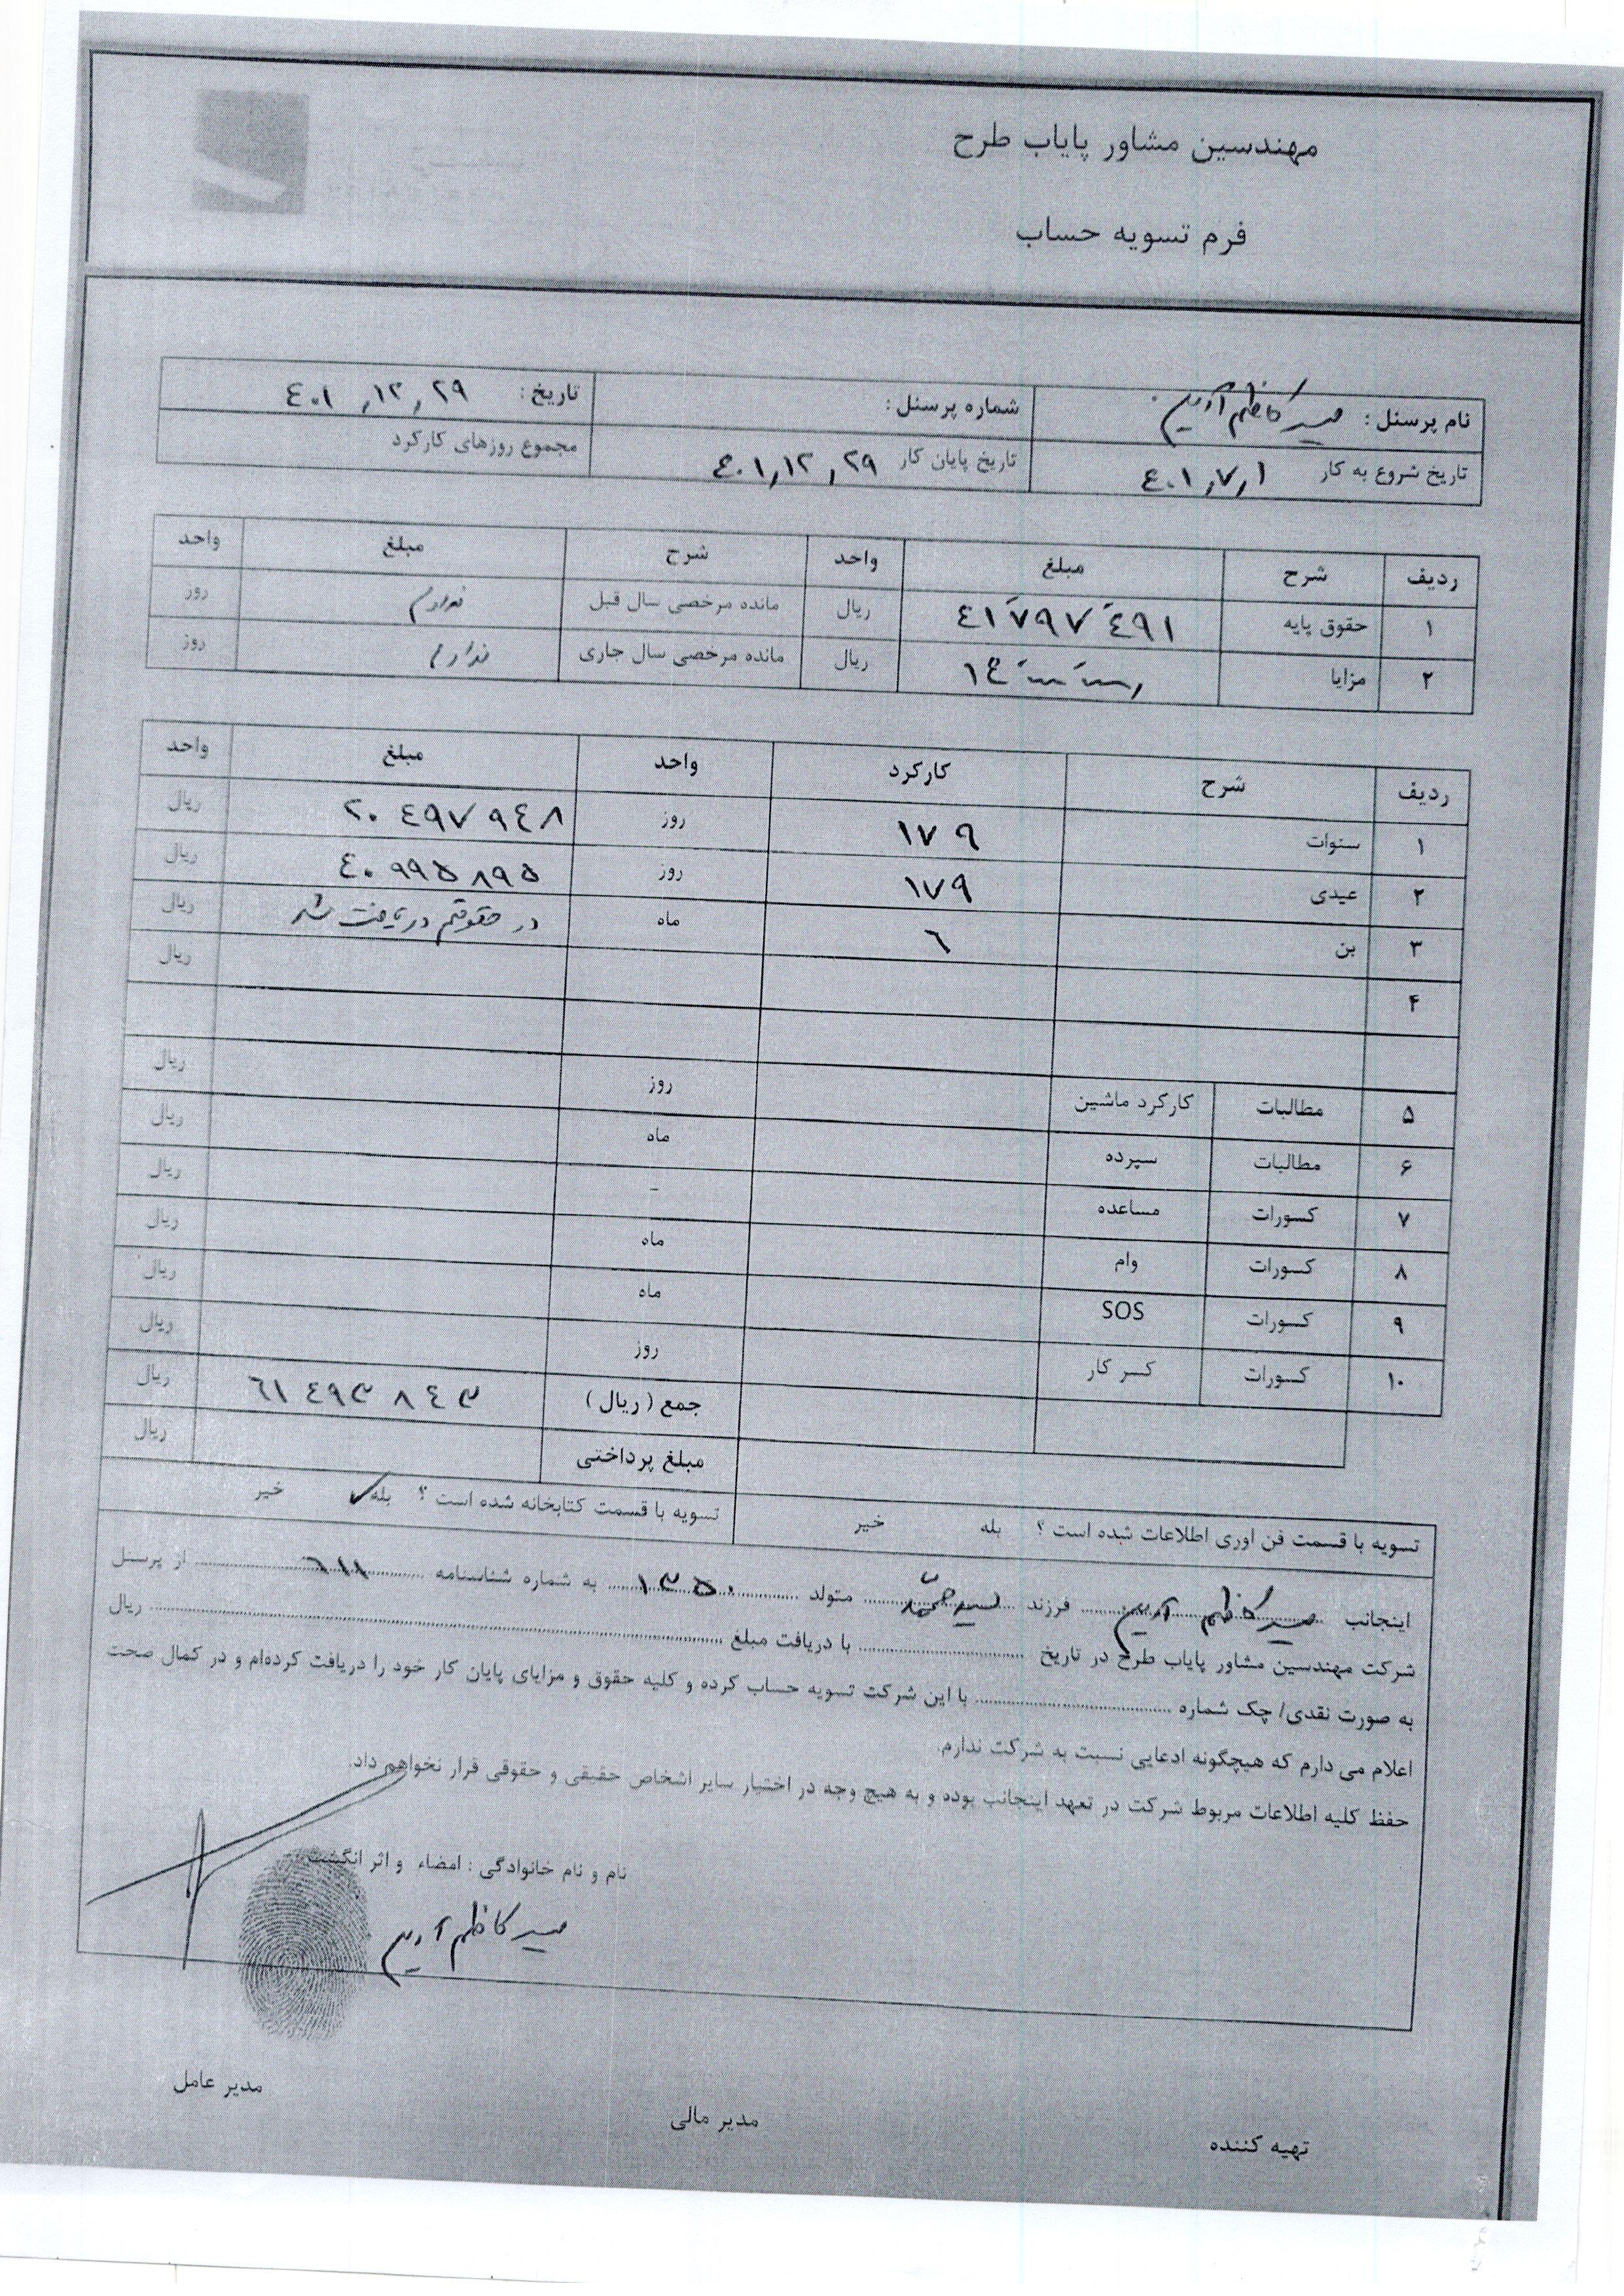 مهندسین مشاور پایاب طرح
فرم تسویه حساب
نام پرسنل : سید کاظم آرین شماره پرسنل : تاریخ : ٤٠١,١٢,٢٩
تاریخ شروع به کار ٤٠١,٧,١ تاریخ پایان کار ٤٠١,١٢,٢٩ مجموع روزهای کارکرد
ردیف شرح مبلغ واحد شرح مبلغ واحد
۱ حقوق پایه ٤١٧٩٧٤٩١ ریال مانده مرخصی سال قبل ندارم روز
۲ مزایا ریال مانده مرخصی سال جاری ندارم روز
ردیف شرح کارکرد واحد مبلغ واحد
۱ سنوات ١٧٩ روز ٢٠ ٤٩٧ ٩٤٨ ریال
۲ عیدی ١٧٩ روز ٤٠ ٩٩٥ ٨٩٥ ریال
۳ بن ٦ ماه در حقوقم دریافت شد ریال
۴ ریال
۵ مطالبات کارکرد ماشین روز ریال
۶ مطالبات سپرده ماه ریال
۷ کسورات مساعده - ریال
۸ کسورات وام ماه ریال
۹ کسورات SOS ماه ریال
۱۰ کسورات کسر کار روز ریال
جمع (ریال) ٦١ ٤٩٣ ٨٤٣ ریال
مبلغ پرداختی ریال
تسویه با قسمت فن اوری اطلاعات شده است ؟ بله خیر تسویه با قسمت کتابخانه شده است ؟ بله ✓ خیر
اینجانب سید کاظم آرین فرزند سید محمد متولد ١٣٥٠ به شماره شناسنامه ٦١١ از پرسنل
شرکت مهندسین مشاور پایاب طرح در تاریخ .......... با دریافت مبلغ .......... ریال
به صورت نقدی/ چک شماره .......... با این شرکت تسویه حساب کرده و کلیه حقوق و مزایای پایان کار خود را دریافت کرده‌ام و در کمال صحت
اعلام می دارم که هیچگونه ادعایی نسبت به شرکت ندارم.
حفظ کلیه اطلاعات مربوط شرکت در تعهد اینجانب بوده و به هیچ وجه در اختیار سایر اشخاص حقیقی و حقوقی قرار نخواهم داد.
نام و نام خانوادگی : امضاء و اثر انگشت
سید کاظم آرین
تهیه کننده مدیر مالی مدیر عامل